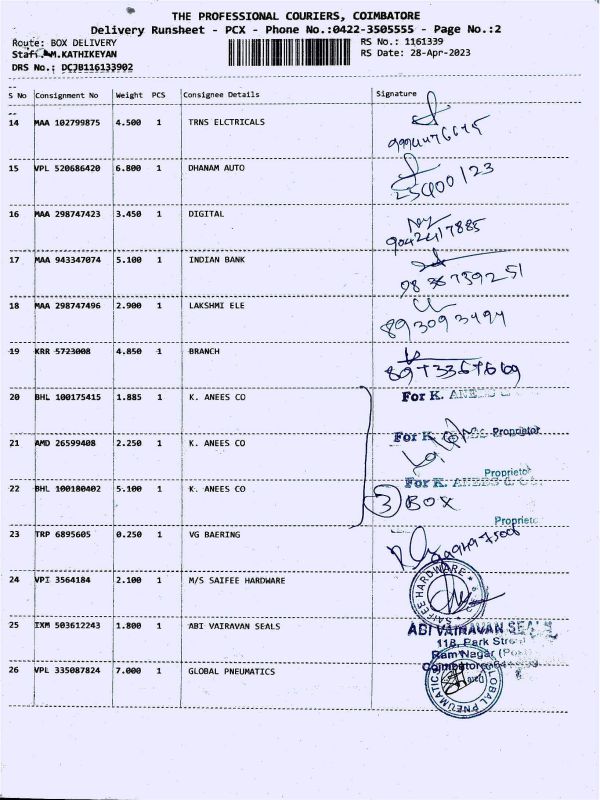 THE PROFESSIONAL COURIERS, COIMBATORE
Delivery Runsheet - PCX - Phone No.:0422-3505555 - Page No.:2
Route: BOX DELIVERY RS No.: 1161339
Staff: M.KATHIKEYAN RS Date: 28-Apr-2023
DRS No.: DCJB116133902
S No Consignment No Weight PCS Consignee Details Signature
14 MAA 102799875 4.500 1 TRNS ELCTRICALS
15 VPL 520686420 6.800 1 DHANAM AUTO
16 MAA 298747423 3.450 1 DIGITAL
9042417885
17 MAA 943347074 5.100 1 INDIAN BANK
18 MAA 298747496 2.900 1 LAKSHMI ELE
893093494
19 KRR 5723008 4.850 1 BRANCH
20 BHL 100175415 1.885 1 K. ANEES CO
For K. ANEES & CO.
21 AMD 26599408 2.250 1 K. ANEES CO
For K. Proprietor
Proprietor
22 BHL 100180402 5.100 1 K. ANEES CO
For K. ANEES & CO.
3 BOX
Proprietor
23 TRP 6895605 0.250 1 VG BAERING
24 VPI 3564184 2.100 1 M/S SAIFEE HARDWARE
SAIFEE HARDWARE
25 IXM 503612243 1.800 1 ABI VAIRAVAN SEALS
ABI VAIRAVAN SEALS
118, Park Street
Ram Nagar
Coimbatore
26 VPL 335087824 7.000 1 GLOBAL PNEUMATICS
GLOBAL PNEUMATICS